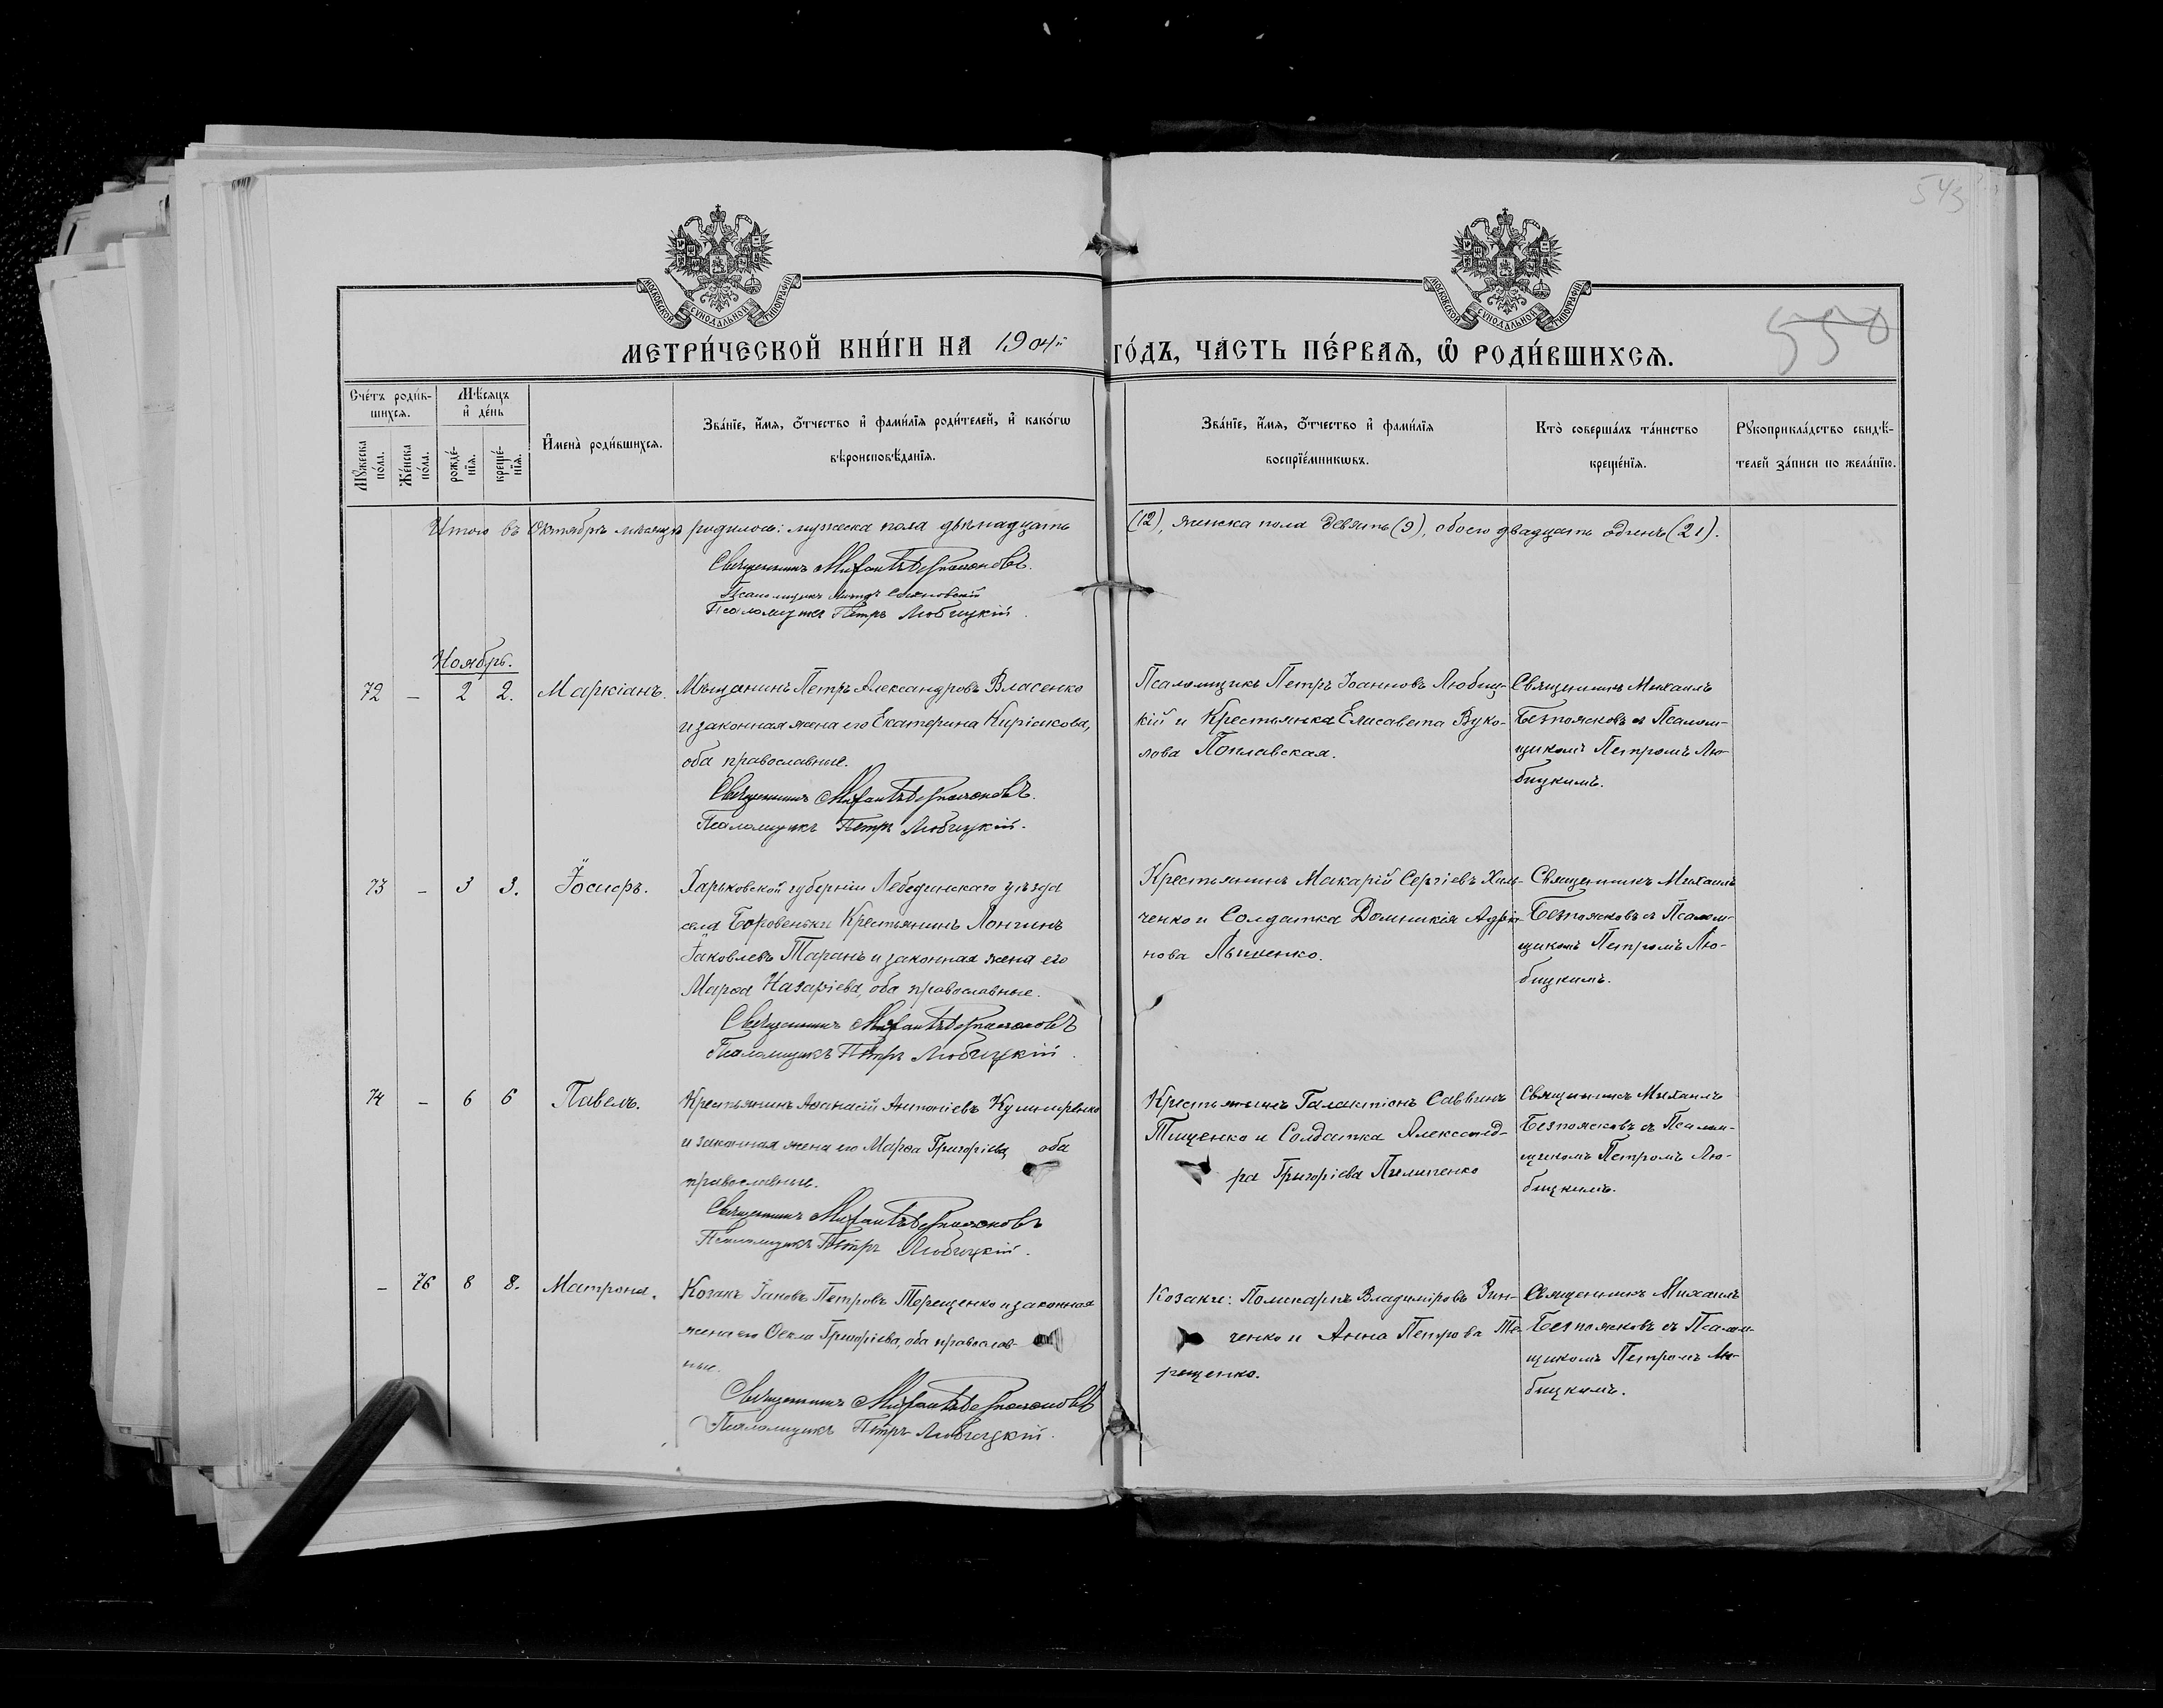 543
550
МОСКОВСКОЙ СУНОДАЛЬНОЙ ТИПОГРАФІИ
МОСКОВСКОЙ СУНОДАЛЬНОЙ ТИПОГРАФІИ
МЕТРИ́ЧЕСКОЙ КНИ́ГИ НА 1904й ГО́ДЪ, ЧА́СТЬ ПЕ́РВАѦ, Ѡ РОДИ́ВШИХСѦ.
Сче́тъ роди́в-
шихся.
Мѣ́сяцъ
и҆ де́нь
Мꙋ́жеска
по́ла.
Же́нска
по́ла.
рожде́-
нїя.
креще́-
нїя.
И҆мена̀ роди́вшихся.
Зва́нїе, и҆́мя, ѻ҆́тчество и҆ фами́лїя роди́телей, и҆ како́гѡ
вѣроисповѣ́данїя.
Зва́нїе, и҆́мя, ѻ҆́тчество и҆ фами́лїя
воспрїе́мникѡвъ.
Кто̀ соверша́лъ та́инство
креще́нїя.
Рꙋкоприкла́дство свидѣ́-
телей за́писи по жела́нїю.
Итого въ Октябрѣ мѣсяцѣ родилось: мужеска пола двѣнадцать (12), женска пола девять (9), обоего двадцать одинъ (21).
Священникъ Михаилъ Безпоясковъ.
Псаломщикъ
Псаломщикъ Петръ Любицкій.
Ноябрь.
72 — 2 2. Маркіанъ. Мѣщанинъ Петръ Александровъ Власенко
и законная жена его Екатерина Киріакова,
оба православные.
Священникъ Михаилъ Безпоясковъ.
Псаломщикъ Петръ Любицкій.
Псаломщикъ Петръ Іоанновъ Любиц-
кій и Крестьянка Елисавета Вуко-
лова Поплавская.
Священникъ Михаилъ
Безпоясковъ съ Псалом-
щикомъ Петромъ Лю-
бицкимъ.
73 — 3 3. Іосифъ. Харьковской губерніи Лебединскаго уѣзда
села Боровеньки Крестьянинъ Лонгинъ
Іаковлевъ Таранъ и законная жена его
Марѳа Назаріева, оба православные.
Священникъ Михаилъ Безпоясковъ
Псаломщикъ Петръ Любицкій.
Крестьянинъ Макарій Сергіевъ Хиль-
ченко и Солдатка Домникія Адріа-
нова
Священникъ Михаилъ
Безпоясковъ съ Псалом-
щикомъ Петромъ Лю-
бицкимъ.
74 — 6 6 Павелъ. Крестьянинъ Аѳанасій Антоніевъ
и законная жена его Марѳа Григоріева, оба
православные.
Священникъ Михаилъ Безпоясковъ
Псаломщикъ Петръ Любицкій.
Крестьянинъ Галактіонъ Саввинъ
Тищенко и Солдатка Александ-
ра Григоріева Пилипенко
Священникъ Михаилъ
Безпоясковъ съ Псалом-
щикомъ Петромъ Лю-
бицкимъ.
— 76 8 8. Матрона. Козакъ Іаковъ Петровъ Терещенко и законная
жена его Ѳекла Григоріева, оба православ-
ные.
Священникъ Михаилъ Безпоясковъ
Псаломщикъ Петръ Любицкій.
Козаки: Поликарпъ Владиміровъ Зин-
ченко и Анна Петрова Те-
рещенко.
Священникъ Михаилъ
Безпоясковъ съ Псалом-
щикомъ Петромъ Лю-
бицкимъ.